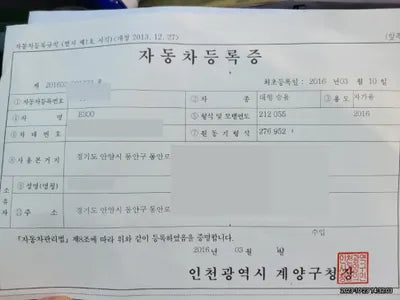 자동차등록규칙 [별지 제1호 서식] <개정 2013. 12. 27>
자 동 차 등 록 증
제 호 최초등록일 : 2016 년 03 월 10 일
① 자동차등록번호 ② 차 종 대형 승용 ③ 용도 자가용
④ 차 명 E300 ⑤ 형식 및 모델연도 212 055 2016
⑥ 차 대 번 호 ⑦ 원 동 기 형 식 276 952
⑧ 사 용 본 거 지 경기도 안양시 동안구 동안로
소유자
⑨ 성명(명칭)
⑪ 주 소 경기도 안양시 동안구 동안로
「자동차관리법」제8조에 따라 위와 같이 등록하였음을 증명합니다. 수입
2016 년 03 월 일
인천광역시 계양구청장